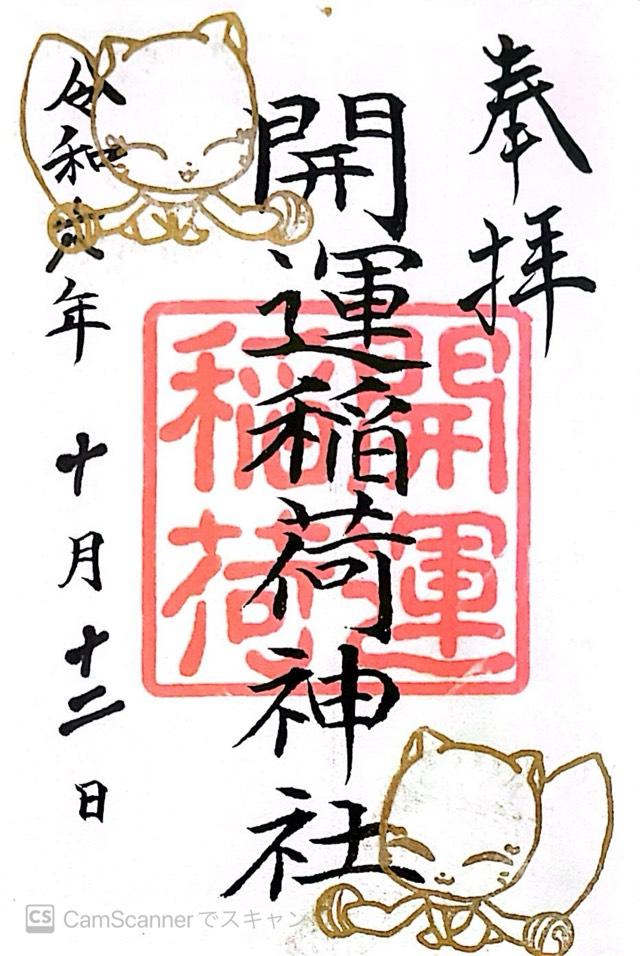 奉拝
開運稲荷神社
開運
稲荷
令和 年 十月十二日
CS CamScannerでスキャン